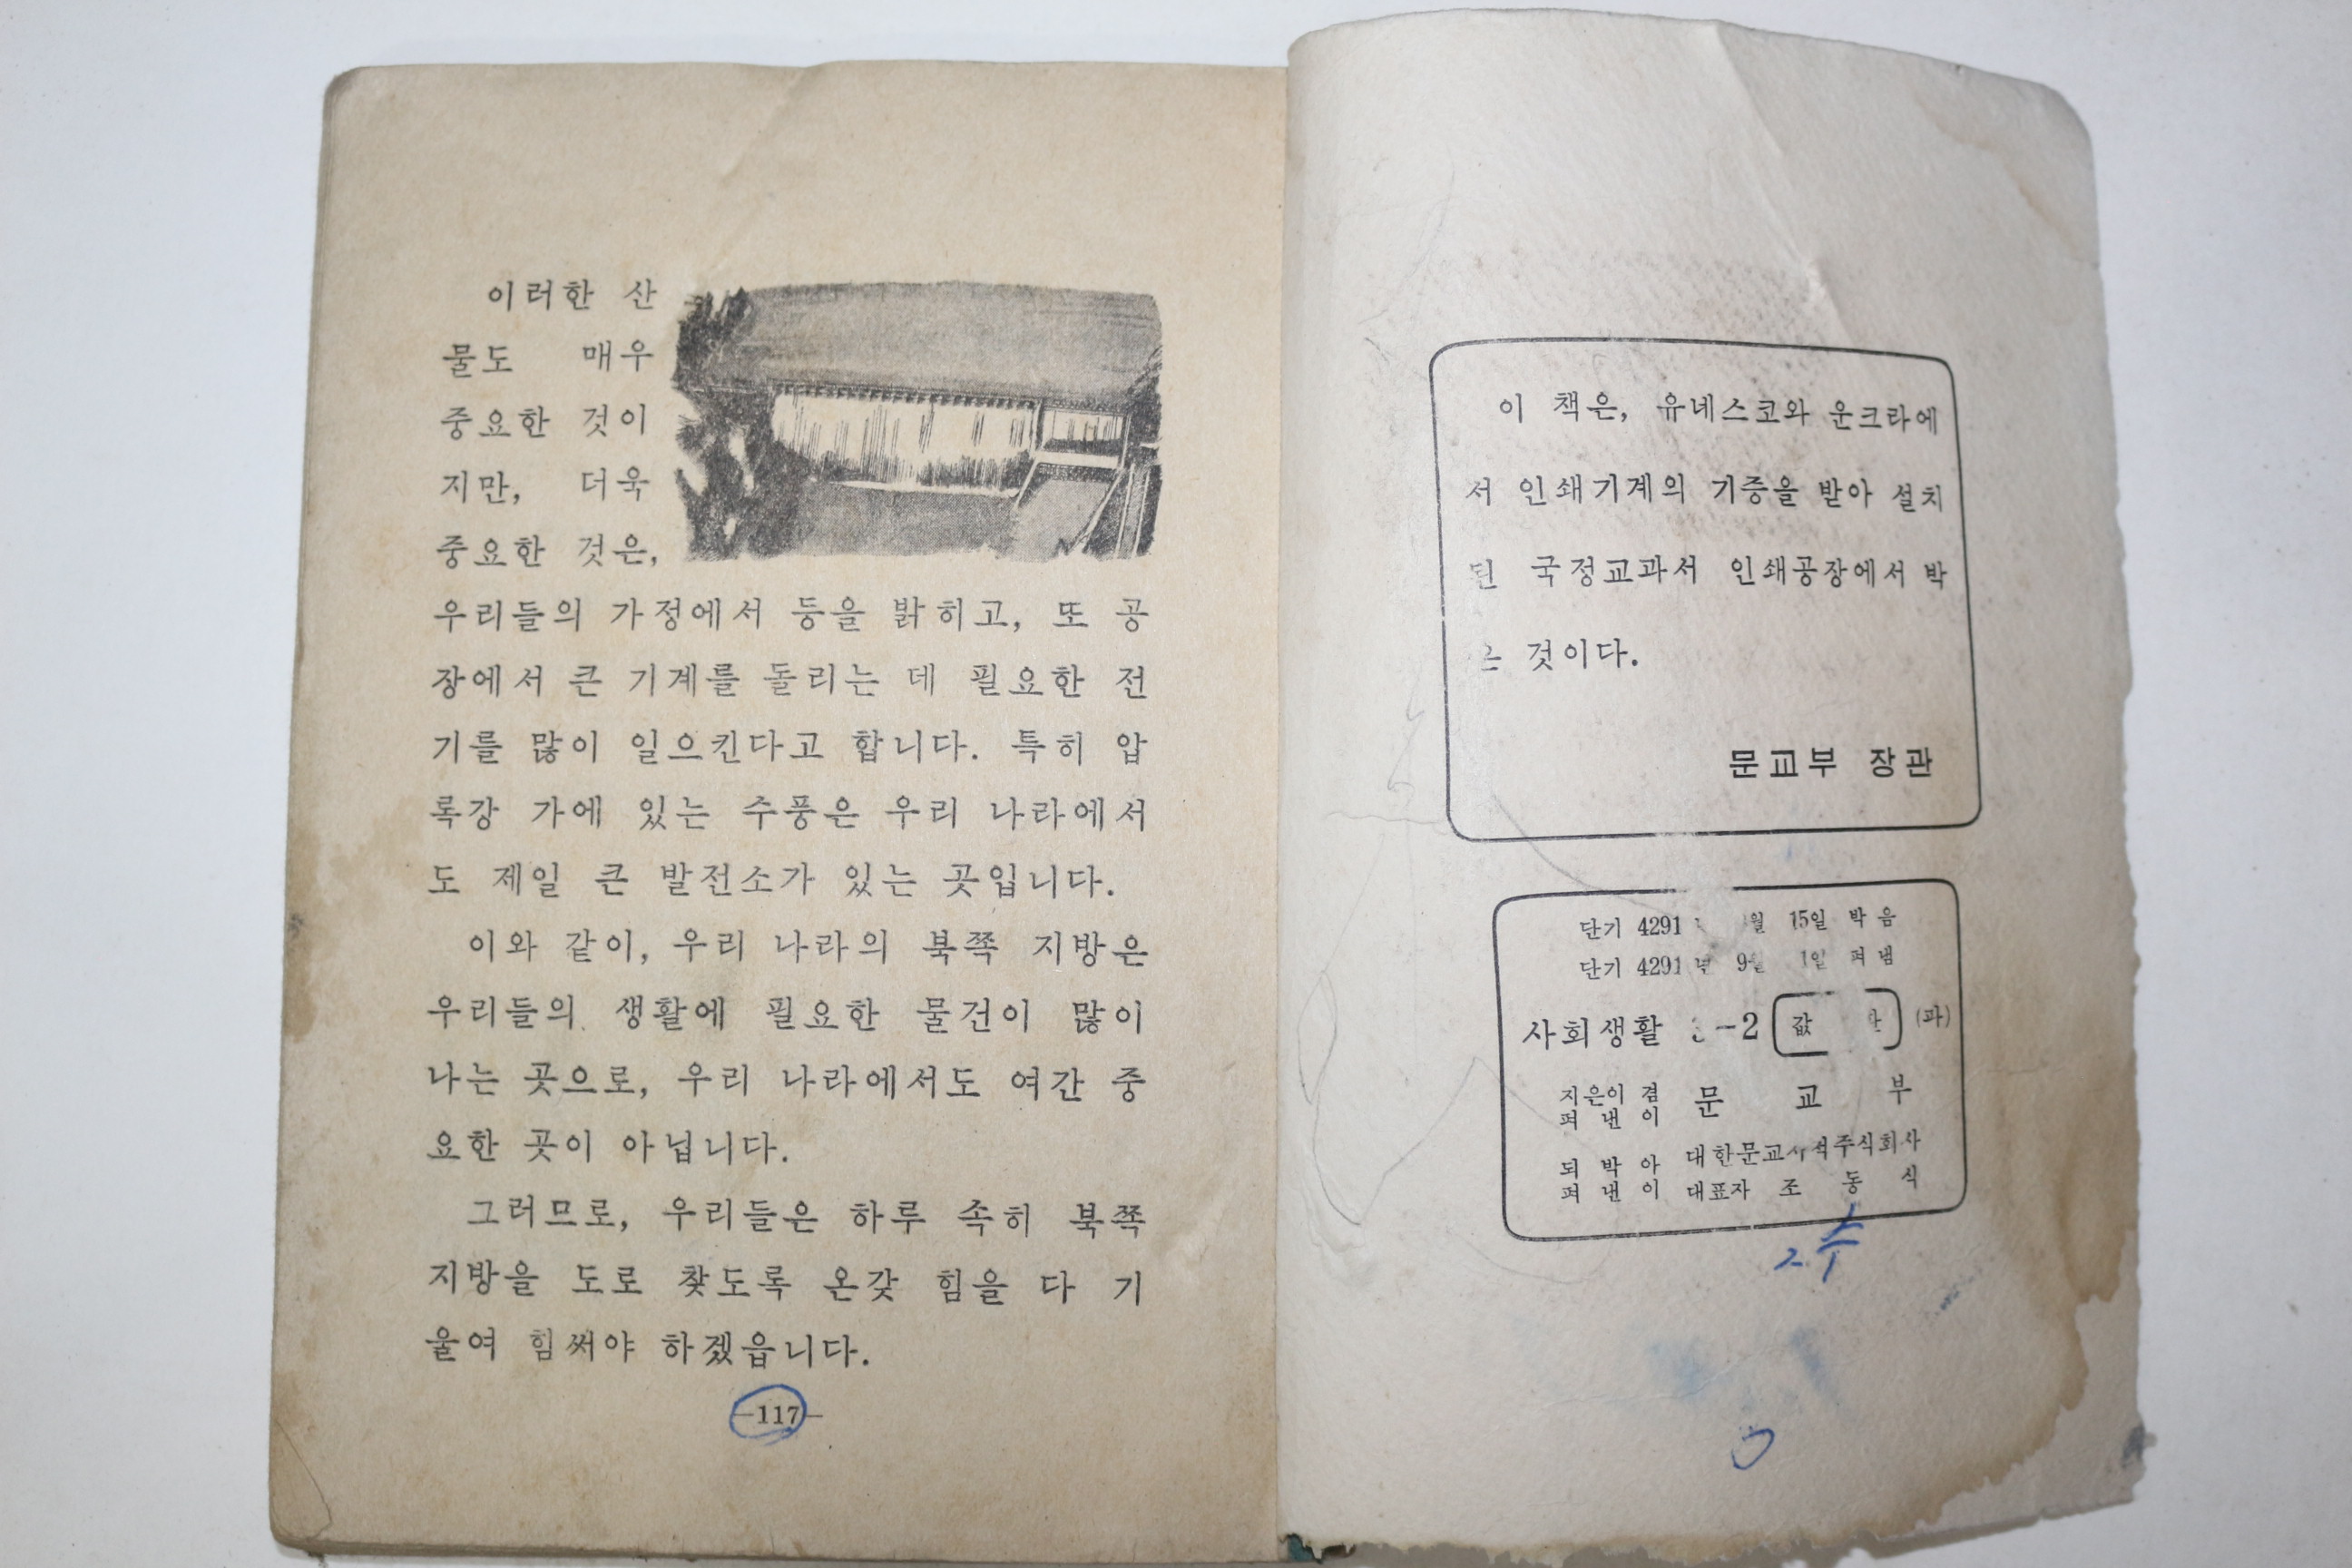 이러한 산
물도 매우
중요한 것이
지만, 더욱
중요한 것은,
우리들의 가정에서 등을 밝히고, 또 공
장에서 큰 기계를 돌리는 데 필요한 전
기를 많이 일으킨다고 합니다. 특히 압
록강 가에 있는 수풍은 우리 나라에서
도 제일 큰 발전소가 있는 곳입니다.
이와 같이, 우리 나라의 북쪽 지방은
우리들의 생활에 필요한 물건이 많이
나는 곳으로, 우리 나라에서도 여간 중
요한 곳이 아닙니다.
그러므로, 우리들은 하루 속히 북쪽
지방을 도로 찾도록 온갖 힘을 다 기
울여 힘써야 하겠읍니다.
—117—
이 책은, 유네스코와 운크라에
서 인쇄기계의 기증을 받아 설치
된 국정교과서 인쇄공장에서 박
은 것이다.
문교부 장관
단기 4291 월 15일 박음
단기 4291년 9월 1일 펴냄
사회생활 -2 값 (파)
지은이 겸
펴 낸 이 문 교 부
되 박 아 대한문교서적주식회사
펴 낸 이 대표자 조 동 식